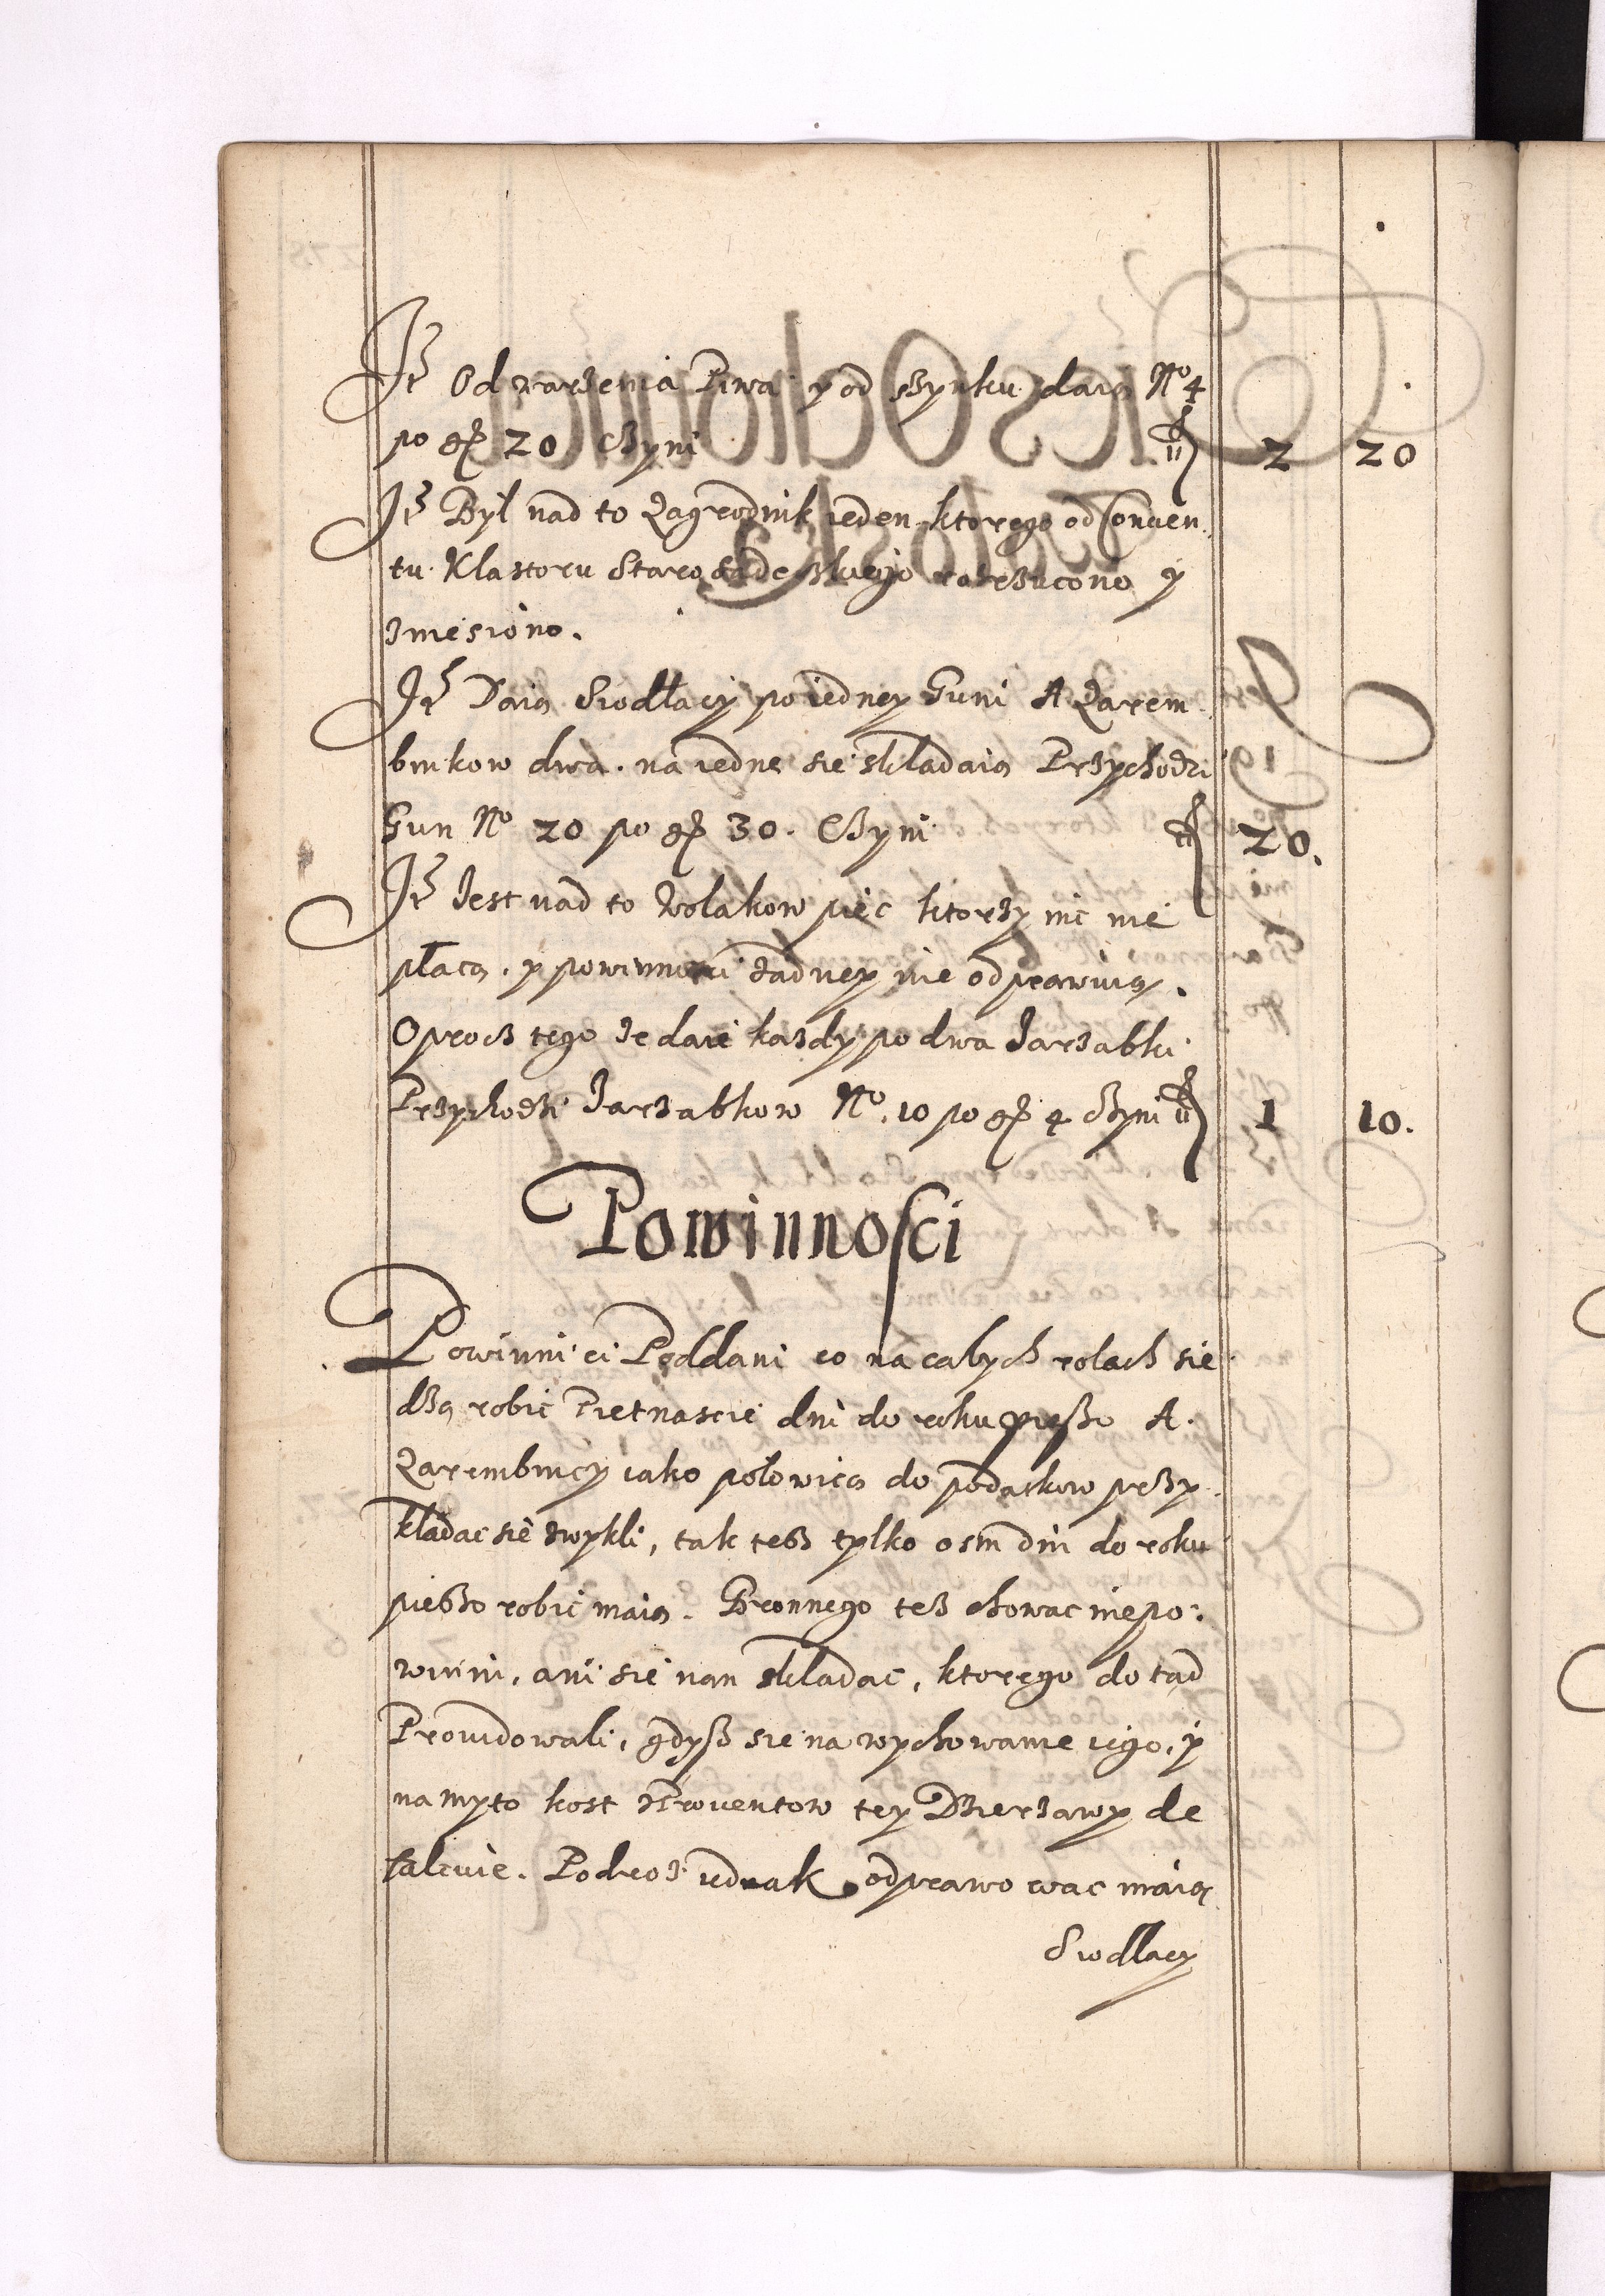 It Od warzenia Piwa y od szynku daią No 4
po gr 20 Czyni fl 2 20
It Był nad to Zagrodnik ieden ktorego od Conven
tu Klastoru Starosądeczkiego rozrzucono y
zniesiono.
It Daią Siodłacy po iedney Guni A Zarem
bnikow dwa. na iedne sie składaią Przychodzi
Gun No 20 po gr 30. Czyni fl 20.
It Jest nad to Wolakow pięc ktorzy nic nie
płacą. y powinnosci żadney nie odprawuią.
Oprocz tego że daie kazdy po dwa Jarząbki
Przychodzi Jarząbkow No. 10 po gr 4 Czyni fl 1 10.
Powinnosci
Powinni ci Poddani co na całych rolach sie
dzą robić Pietnascie dni do roku pieszo A.
Zarembnicy iako połowicą do podatkow przy
kładac się zwykli, tak tesz tylko osm dni do roku
pieszo robic maią. Bronnego tesz chowac niepo:
winni, ani się nan składac, ktorego do tąd
Prowidowali, gdysz sie na wychowanie iego, y
na myto koszt z Proventow tey Dzierzawy de
falcuie. Podroż iednak odprawowac maią
Siodłacy